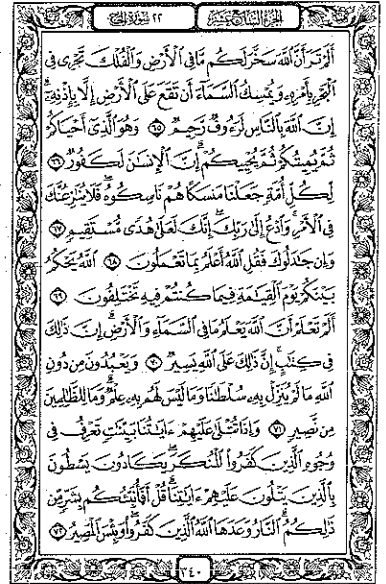 الجزء السابع عشر
٢٢ سورة الحج
أَلَمْ تَرَ أَنَّ ٱللَّهَ سَخَّرَ لَكُم مَّا فِى ٱلْأَرْضِ وَٱلْفُلْكَ تَجْرِى فِى
ٱلْبَحْرِ بِأَمْرِهِۦ وَيُمْسِكُ ٱلسَّمَآءَ أَن تَقَعَ عَلَى ٱلْأَرْضِ إِلَّا بِإِذْنِهِۦٓ
إِنَّ ٱللَّهَ بِٱلنَّاسِ لَرَءُوفٌ رَّحِيمٌ ٦٥ وَهُوَ ٱلَّذِىٓ أَحْيَاكُمْ
ثُمَّ يُمِيتُكُمْ ثُمَّ يُحْيِيكُمْ إِنَّ ٱلْإِنسَٰنَ لَكَفُورٌ ٦٦
لِّكُلِّ أُمَّةٍ جَعَلْنَا مَنسَكًا هُمْ نَاسِكُوهُ فَلَا يُنَٰزِعُنَّكَ
فِى ٱلْأَمْرِ وَٱدْعُ إِلَىٰ رَبِّكَ إِنَّكَ لَعَلَىٰ هُدًى مُّسْتَقِيمٍ ٦٧
وَإِن جَٰدَلُوكَ فَقُلِ ٱللَّهُ أَعْلَمُ بِمَا تَعْمَلُونَ ٦٨ ٱللَّهُ يَحْكُمُ
بَيْنَكُمْ يَوْمَ ٱلْقِيَٰمَةِ فِيمَا كُنتُمْ فِيهِ تَخْتَلِفُونَ ٦٩
أَلَمْ تَعْلَمْ أَنَّ ٱللَّهَ يَعْلَمُ مَا فِى ٱلسَّمَآءِ وَٱلْأَرْضِ إِنَّ ذَٰلِكَ
فِى كِتَٰبٍ إِنَّ ذَٰلِكَ عَلَى ٱللَّهِ يَسِيرٌ ٧٠ وَيَعْبُدُونَ مِن دُونِ
ٱللَّهِ مَا لَمْ يُنَزِّلْ بِهِۦ سُلْطَٰنًا وَمَا لَيْسَ لَهُم بِهِۦ عِلْمٌ وَمَا لِلظَّٰلِمِينَ
مِن نَّصِيرٍ ٧١ وَإِذَا تُتْلَىٰ عَلَيْهِمْ ءَايَٰتُنَا بَيِّنَٰتٍ تَعْرِفُ فِى
وُجُوهِ ٱلَّذِينَ كَفَرُوا۟ ٱلْمُنكَرَ يَكَادُونَ يَسْطُونَ
بِٱلَّذِينَ يَتْلُونَ عَلَيْهِمْ ءَايَٰتِنَا قُلْ أَفَأُنَبِّئُكُم بِشَرٍّ مِّن
ذَٰلِكُمُ ٱلنَّارُ وَعَدَهَا ٱللَّهُ ٱلَّذِينَ كَفَرُوا۟ وَبِئْسَ ٱلْمَصِيرُ ٧٢
٣٤٠